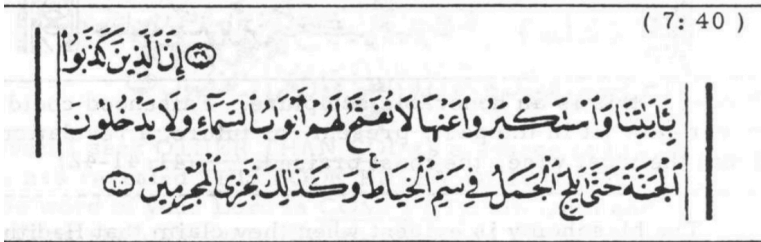 ( 7:40 )
۝٣٩ إِنَّ ٱلَّذِينَ كَذَّبُوا۟
بِـَٔايَـٰتِنَا وَٱسْتَكْبَرُوا۟ عَنْهَا لَا تُفَتَّحُ لَهُمْ أَبْوَٰبُ ٱلسَّمَآءِ وَلَا يَدْخُلُونَ
ٱلْجَنَّةَ حَتَّىٰ يَلِجَ ٱلْجَمَلُ فِى سَمِّ ٱلْخِيَاطِ وَكَذَٰلِكَ نَجْزِى ٱلْمُجْرِمِينَ ۝٤٠